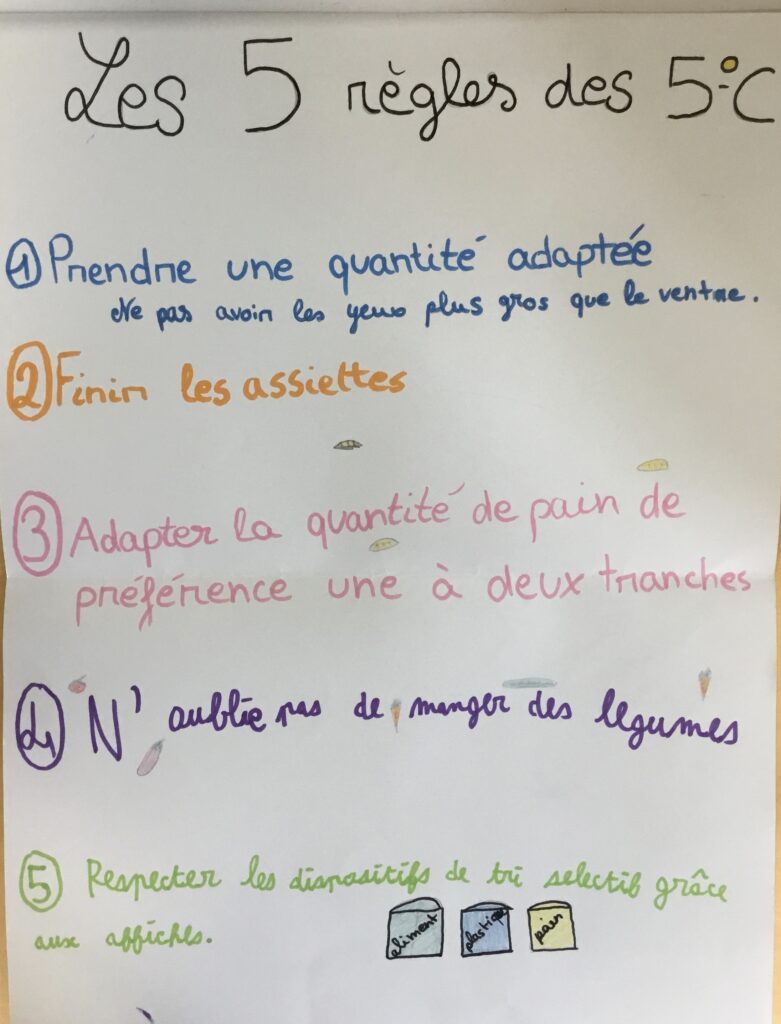 Les 5 règles des 5°C
① Prendre une quantité adaptée
Ne pas avoir les yeux plus gros que le ventre.
② Finir les assiettes
③ Adapter la quantité de pain de
préférence une à deux tranches
④ N'oublie pas de manger des légumes
⑤ Respecter les dispositifs de tri selectif grâce
aux affiches.
aliment plastique pain